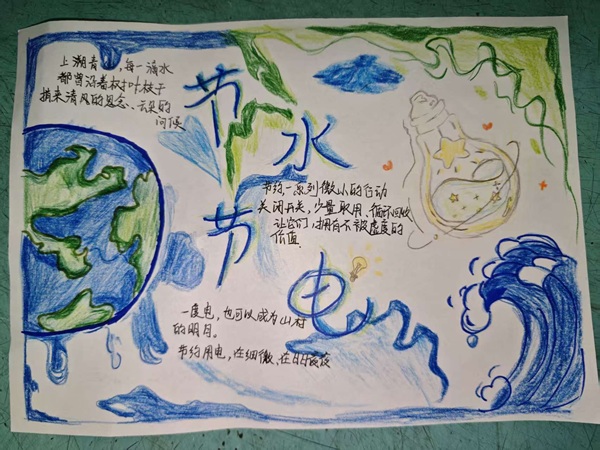 节
水
节
电
上溯青山,每一滴水
都曾沿着树叶枝干
捎来清风的思念、云朵的
问候
节约一系列微小的行动
关闭开关,少量取用、循环回收
让它们拥有不被虚度的
价值.
一度电,也可以成为山村
的明月。
节约用电,在细微、在日日夜夜